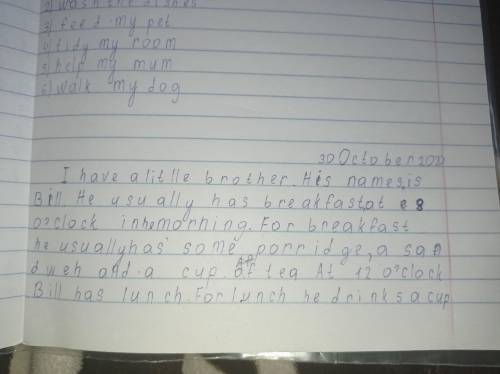 2) wash the dishes
3) feed my pet
4) tidy my room
5) help my mum
6) walk my dog
30 October
I have a litlle brother. His names is
Bill. He usually has breakfast at 8
o'clock in he morning. For breakfast
he usually has some porridge, a san
dweh and a cup of tea At 12 o'clock
Bill has lunch. For lunch he drinks a cup